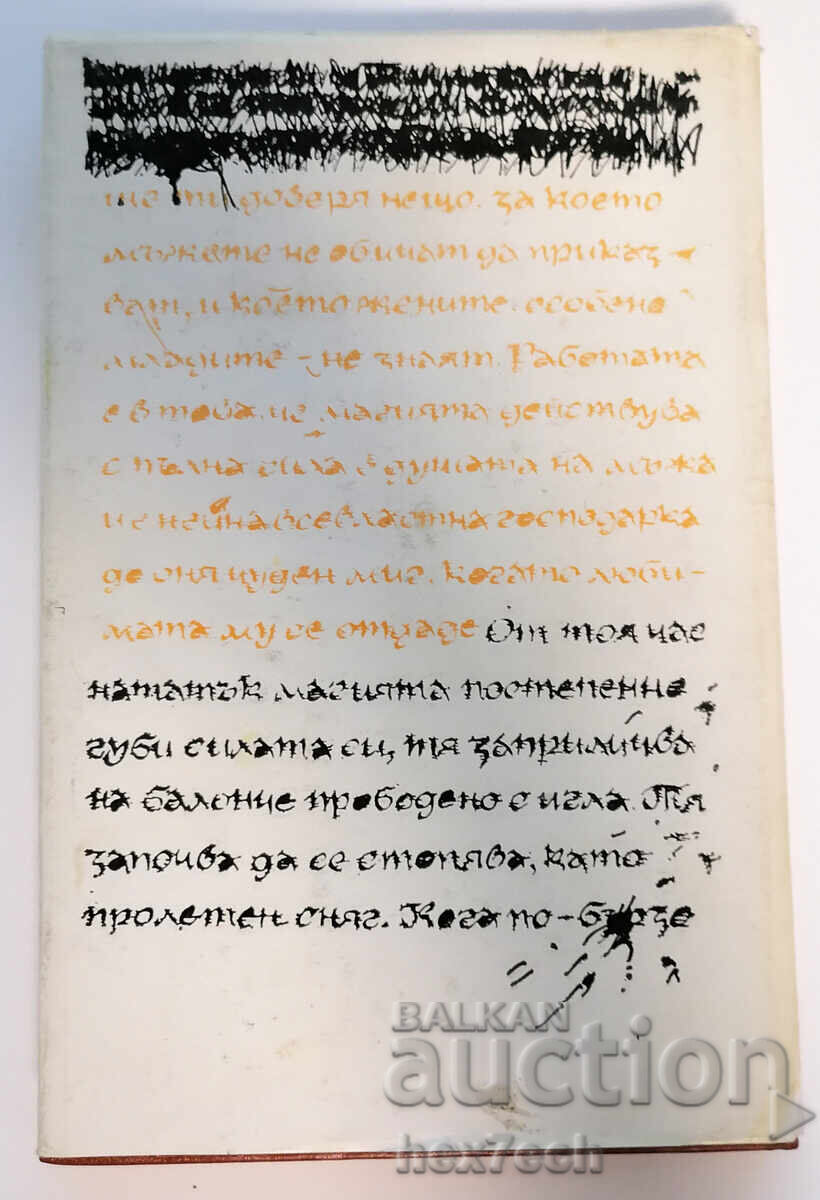 ще ти доверя нещо. за което
мъжете не обичат да приказ-
ват, и което жените. особено
младите - не знаят. Работата
е в това. че магията действува
с пълна сила в душата на мъжа
и е нейна всевластна господарка
до оня чуден миг, когато люби-
мата му се отдаде От тоя час
нататък магията постепенно
губи силата си, тя заприличва
на балонче прободено с игла. Тя
започва да се стопява, като
пролетен сняг. Кога по-бързо
BALKAN
auction
hex7ech